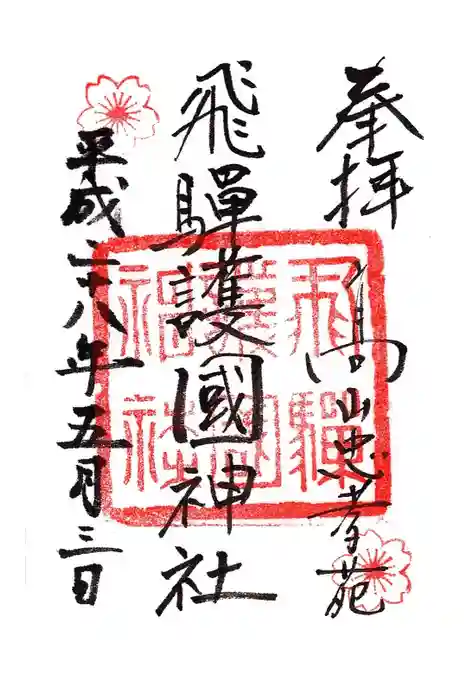 奉拝 高山忠孝苑
飛驒護國神社
平成二十八年五月三日
飛驒護國神社